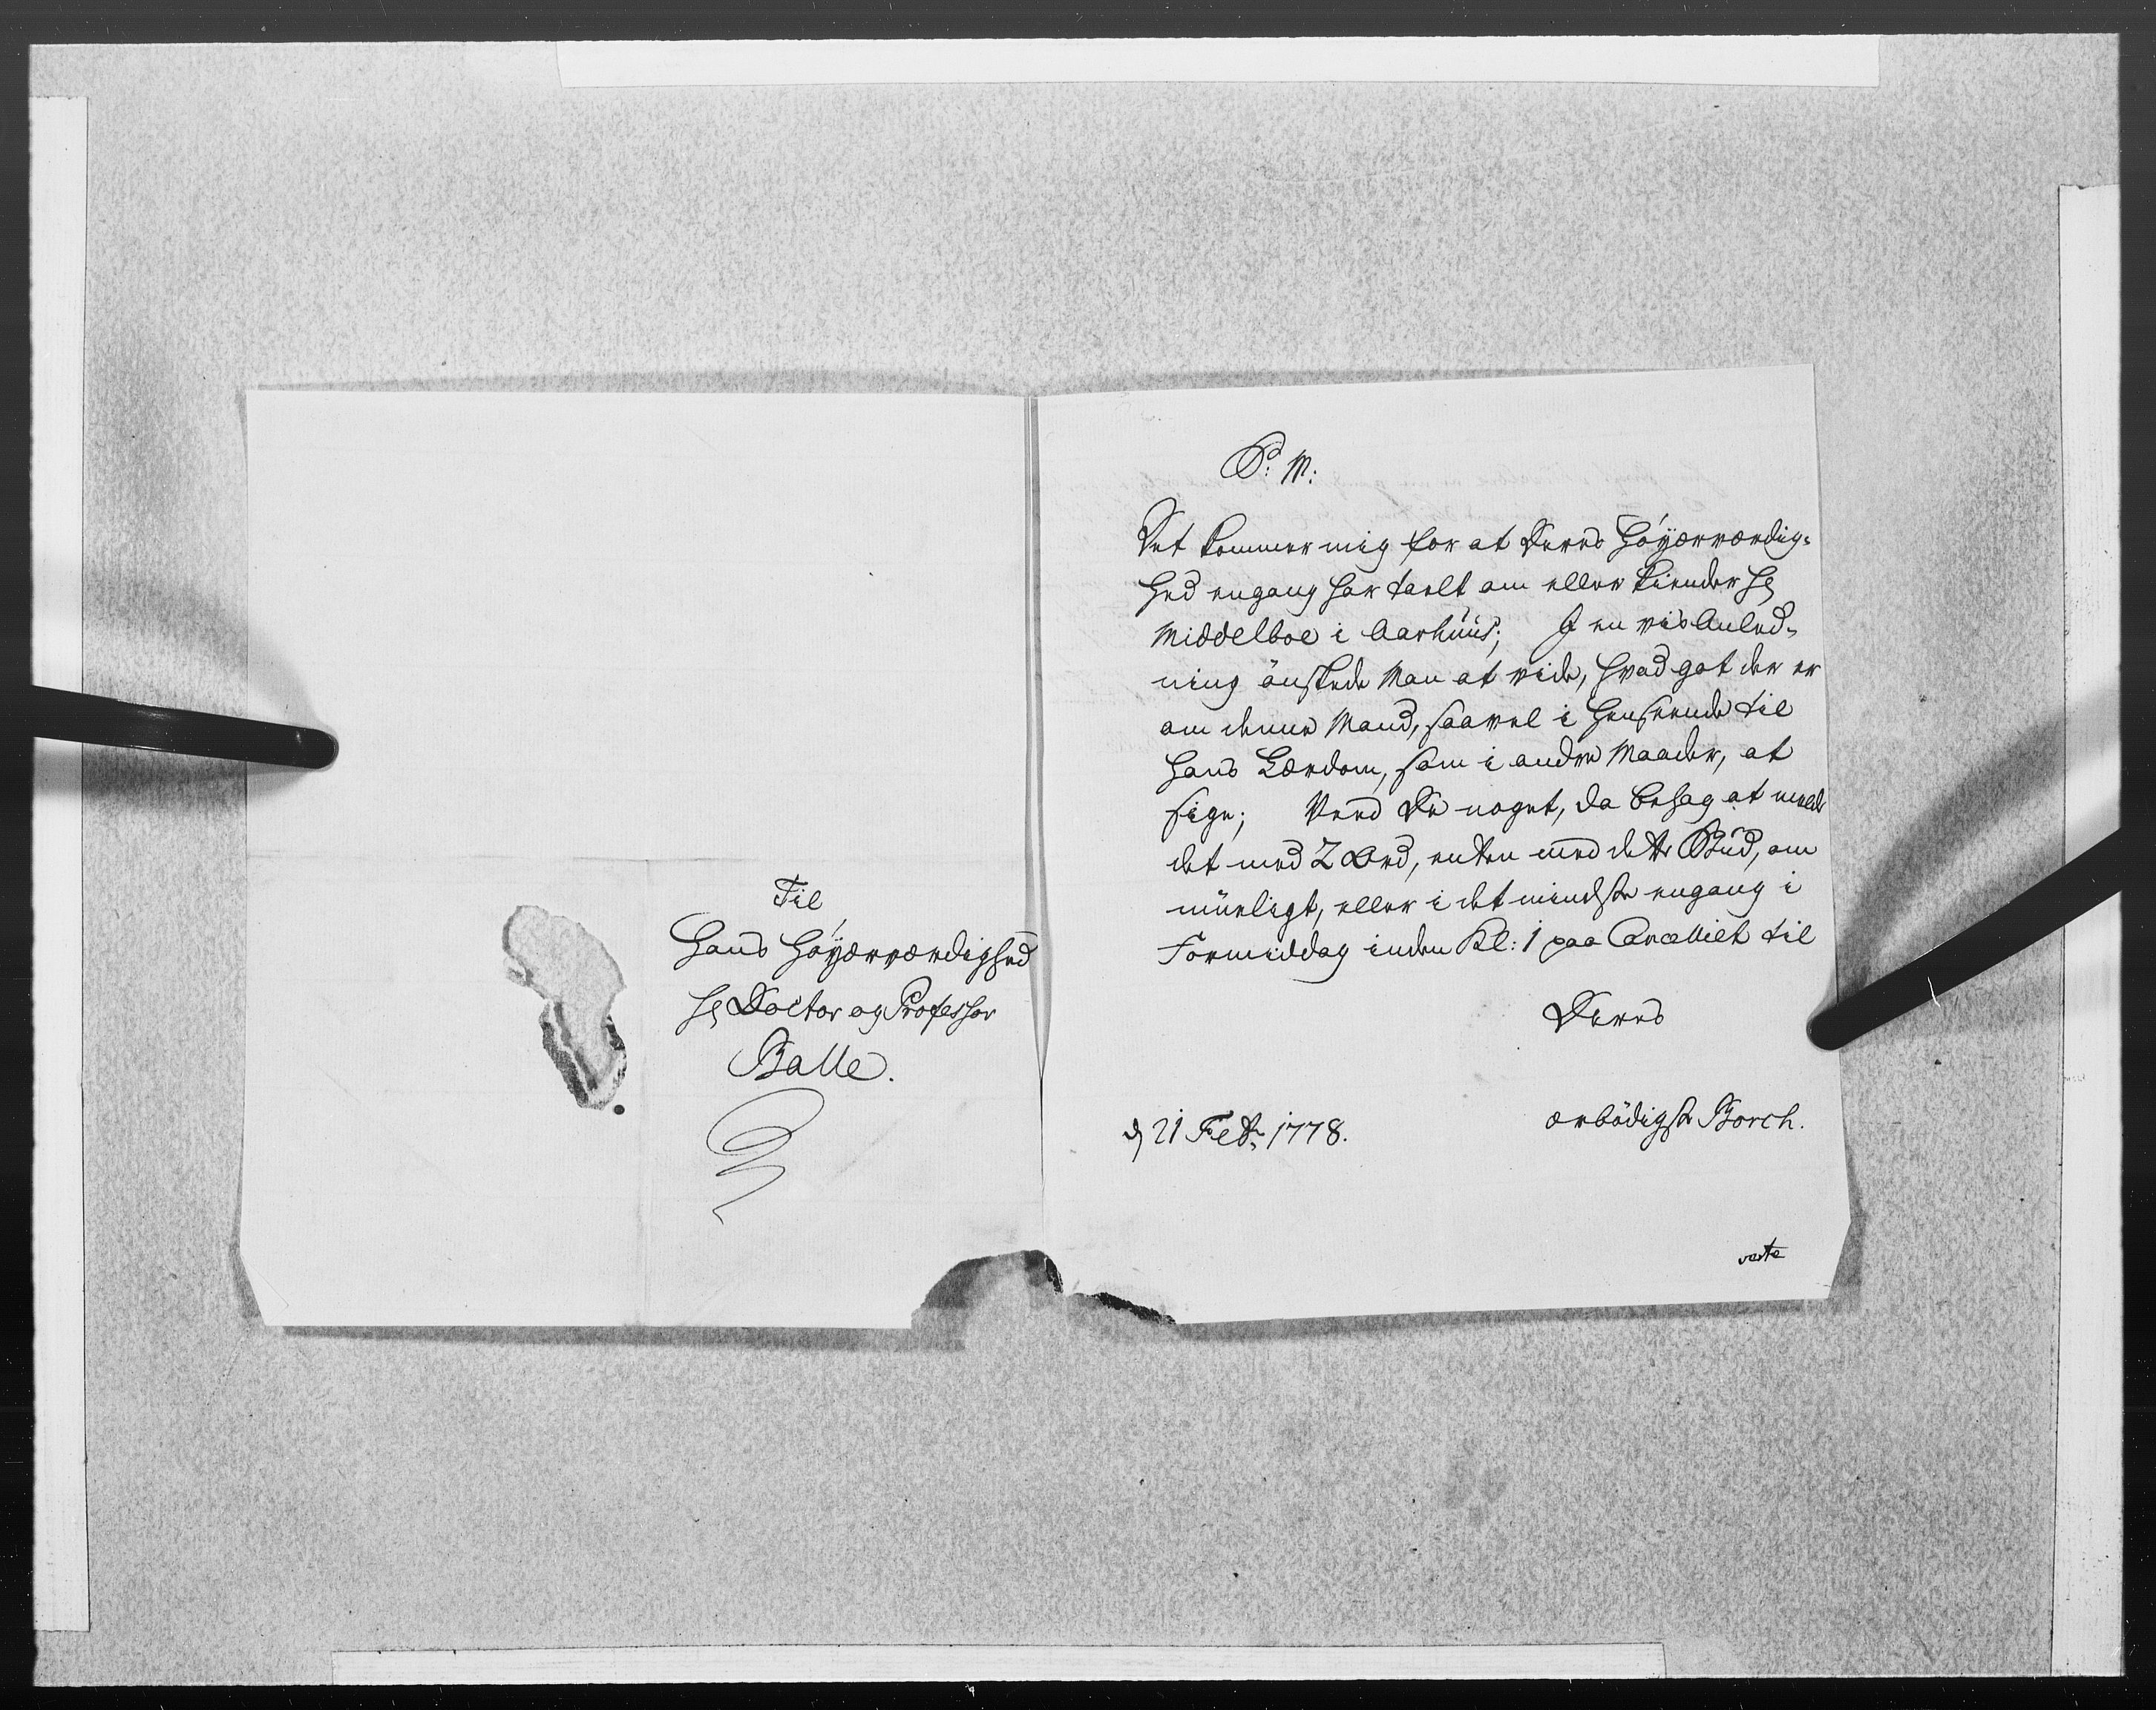 Til
Hans Høyærværdighed
Hr Doctor og Professor
Balle.
P. M.
Det kommer mig for at Deres Høyærværdig-
hed engang har talt om eller kiender Hr
Middelboe i Aarhuus; I en vis Anled-
ning ønskede Man at vide, hvad got der er
om denne Mand, saavel i Henseende til
hans Lærdom, som i andre Maader, at
sige; Veed De noget, da behag at melde
det med 2 Ord, enten med dette Bud, om
mueligt, eller i det mindste engang i
Formiddag inden Kl: 1 paa Cancelliet til
Deres
ærbødigste Borch.
d 21 Febr. 1778.
verte